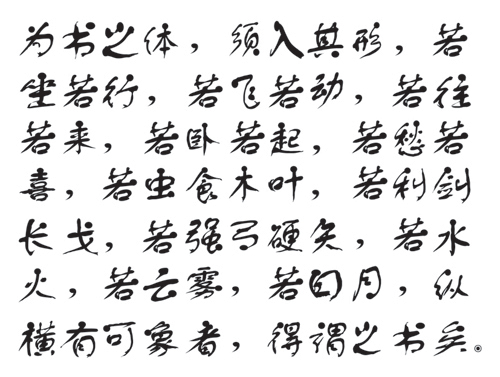 为书之体，须入其形，若
坐若行，若飞若动，若往
若来，若卧若起，若愁若
喜，若虫食木叶，若利剑
长戈，若强弓硬矢，若水
火，若云雾，若日月，纵
横有可象者，得谓之书矣。